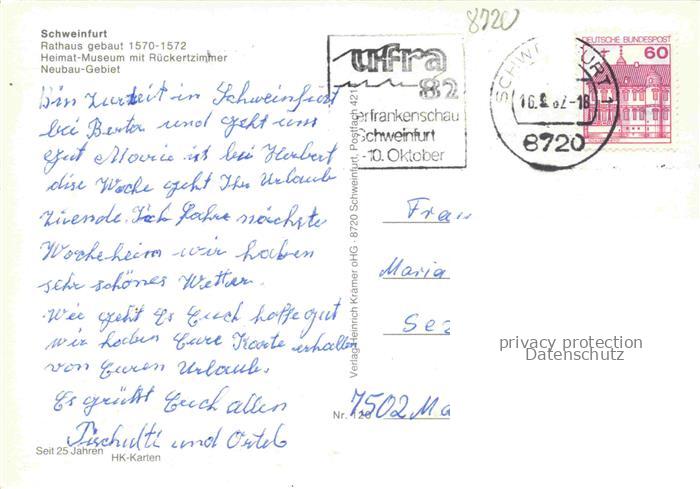 8720
Schweinfurt
Rathaus gebaut 1570-1572
Heimat-Museum mit Rückertzimmer
Neubau-Gebiet
ufra
82
erfrankenschau
Schweinfurt
-10. Oktober
SCHW FURT 1
16. 82-18
8720
DEUTSCHE BUNDESPOST
60
Bin Zurzeit in Schweinfurt
bei Berta und geht uns
gut Marie ist bei Herbert
dise Woche geht Ihr Urlaub
zuende. Ich fahre nächste
Wocheheim wir haben
sehr schönes Wetter.
Wie geht Es Euch hoffe gut
wir haben Eure Karte erhalten
von Euren Urlaub.
Es grüßt Euch allen
und
Seit 25 Jahren HK-Karten
Verlag Heinrich Krämer oHG · 8720 Schweinfurt, Postfach 421
Nr. 120
Frau
Maria
Se
7502 Ma
privacy protection
Datenschutz